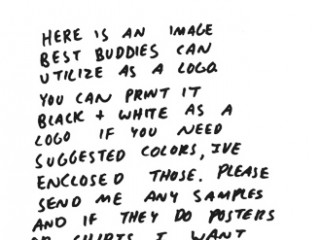 HERE IS AN IMAGE
BEST BUDDIES CAN
UTILIZE AS A LOGO.
YOU CAN PRINT IT
BLACK + WHITE AS A
LOGO IF YOU NEED
SUGGESTED COLORS, IVE
ENCLOSED THOSE. PLEASE
SEND ME ANY SAMPLES
AND IF THEY DO POSTERS
OR SHIRTS I WANT